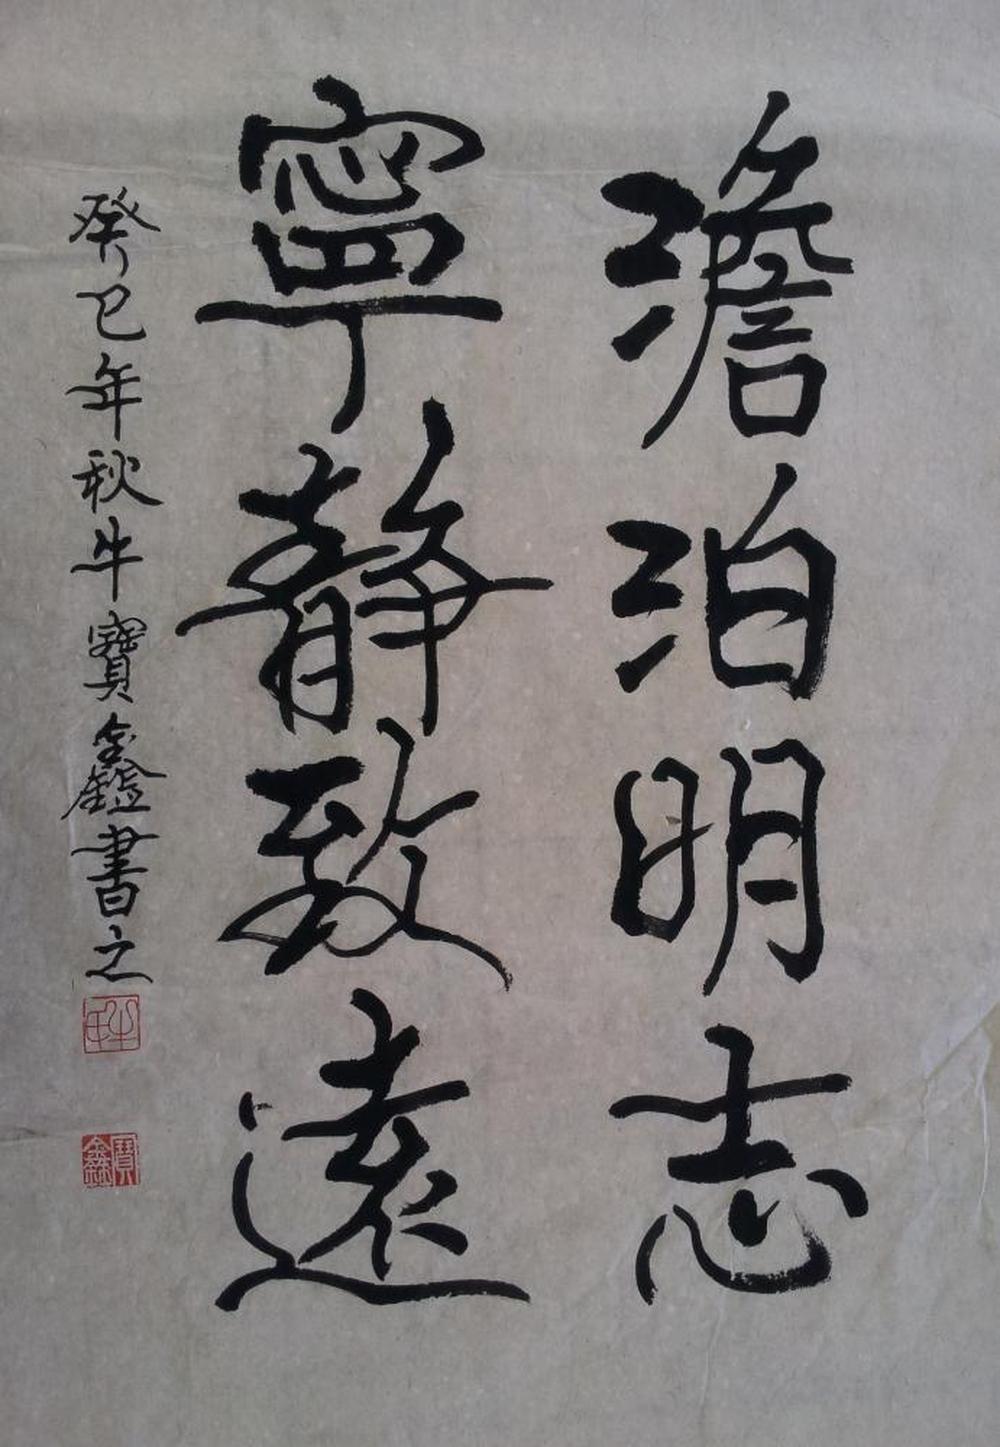 澹泊明志
寧靜致遠
癸巳年秋牛寶鑫書之
牛
寶鑫